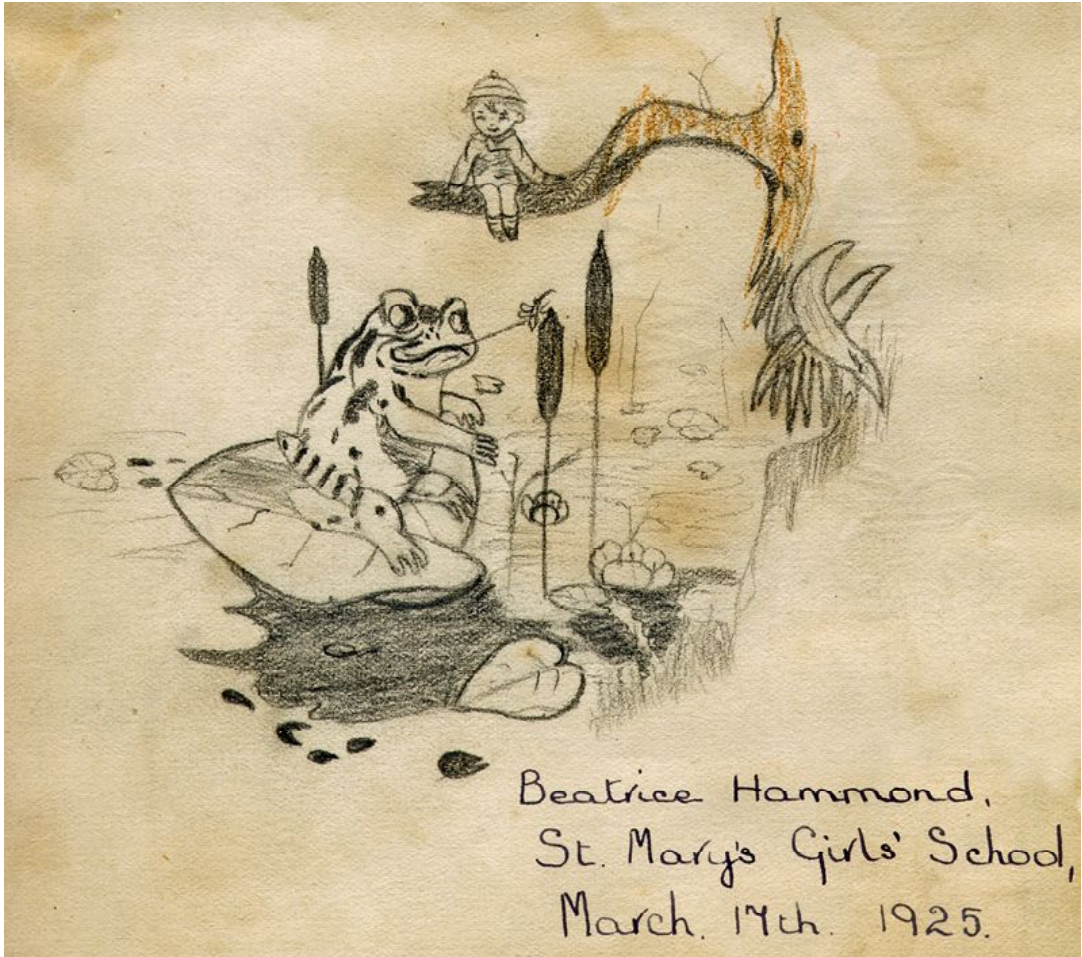 Beatrice Hammond,
St. Mary's Girls' School,
March. 17th. 1925.